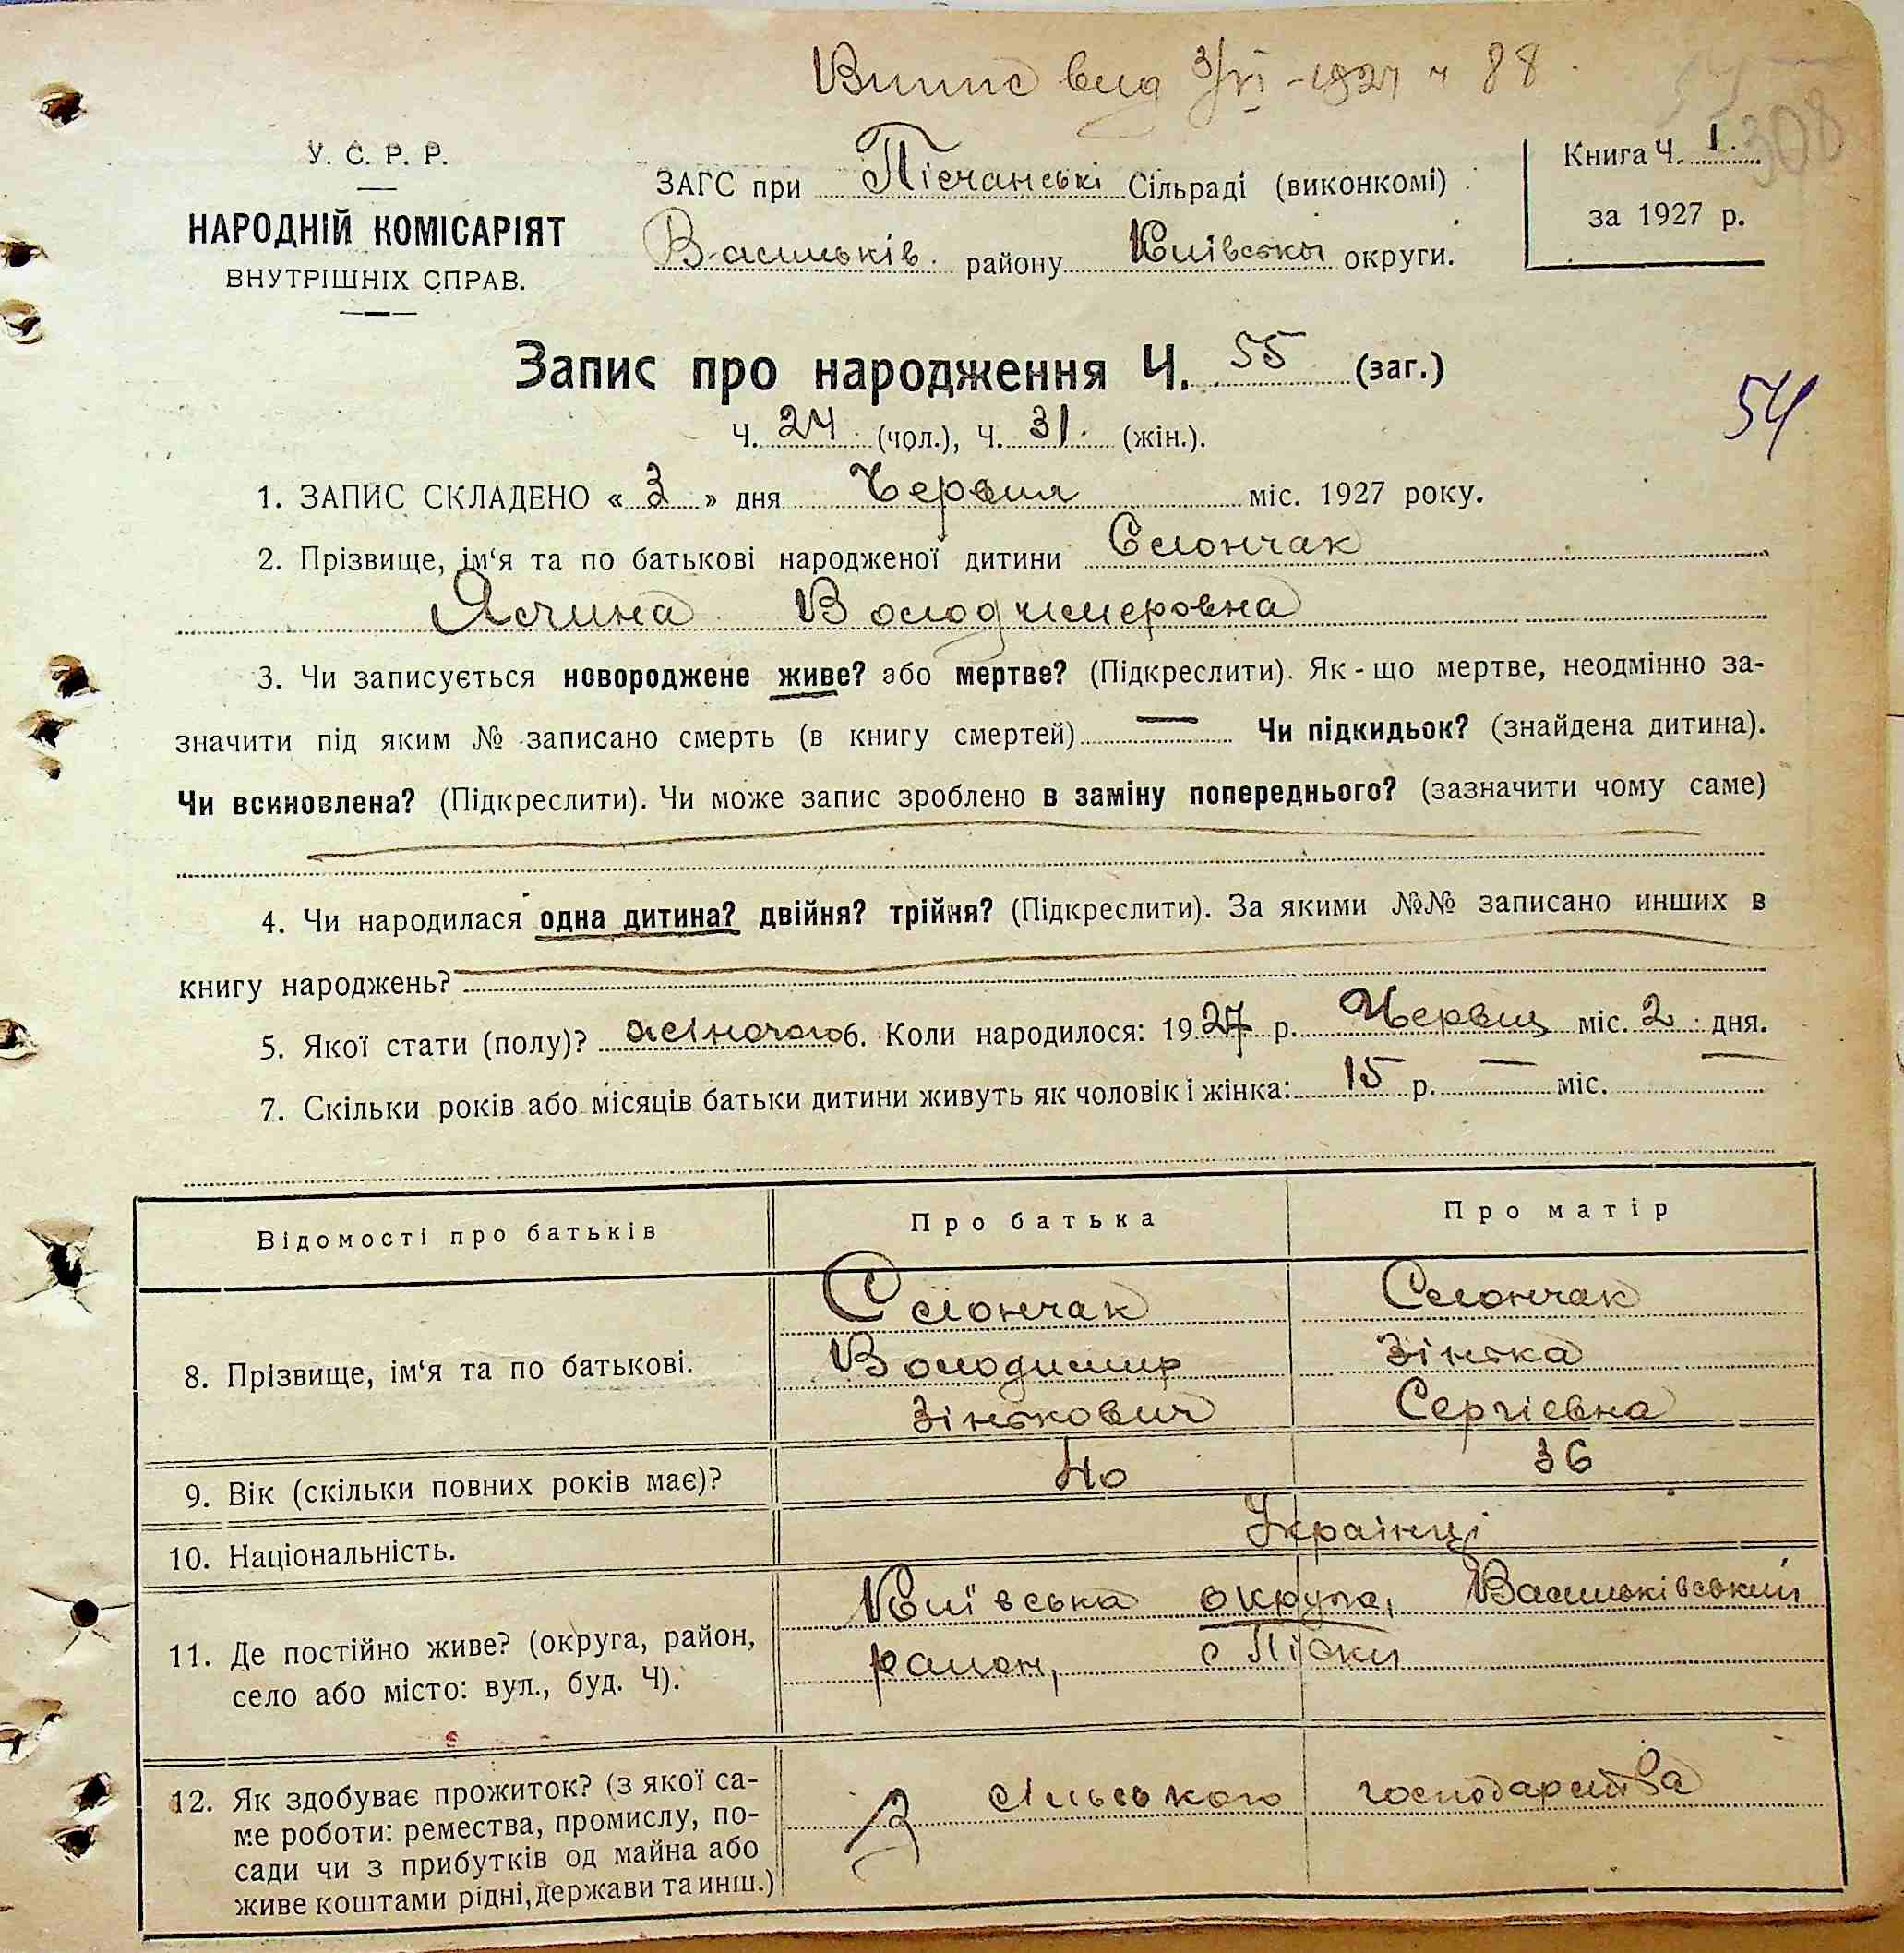 Випис вид 3/VI - 1927 ч 88
308
У. С. Р. Р.
НАРОДНІЙ КОМІСАРІЯТ
ВНУТРІШНІХ СПРАВ.
ЗАГС при Пісчанські Сільраді (виконкомі)
Васильків. району Київськы округи.
Книга Ч. 1.
за 1927 р.
Запис про народження Ч. 55 (заг.)
54
Ч. 24 (чол.), Ч. 31. (жін.).
1. ЗАПИС СКЛАДЕНО «3» дня Червня міс. 1927 року.
2. Прізвище, ім‘я та по батькові народженої дитини Слончак
Володимеровна
3. Чи записується новороджене живе? або мертве? (Підкреслити). Як-що мертве, неодмінно за-
значити під яким № записано смерть (в книгу смертей) — Чи підкидьок? (знайдена дитина).
Чи всиновлена? (Підкреслити). Чи може запис зроблено в заміну попереднього? (зазначити чому саме)
4. Чи народилася одна дитина? двійня? трійня? (Підкреслити). За якими №№ записано инших в
книгу народжень?
5. Якої стати (полу)? жіночого 6. Коли народилося: 1927 р. Червня міс. 2 дня.
7. Скільки років або місяців батьки дитини живуть як чоловік і жінка: 15 р. — міс. —
Відомості про батьків Про батька Про матір
8. Прізвище, ім‘я та по батькові.
Слончак
Володимир
Зінькович
Слончак
Зінька
Сергієвна
9. Вік (скільки повних років має)? 40 36
10. Національність. Українці
11. Де постійно живе? (округа, район,
село або місто: вул., буд. Ч).
Київська округа, Васильківський
район, с Піски
12. Як здобуває прожиток? (з якої са-
ме роботи: ремества, промислу, по-
сади чи з прибутків од майна або
живе коштами рідні, держави та инш.)
З сільського господарства